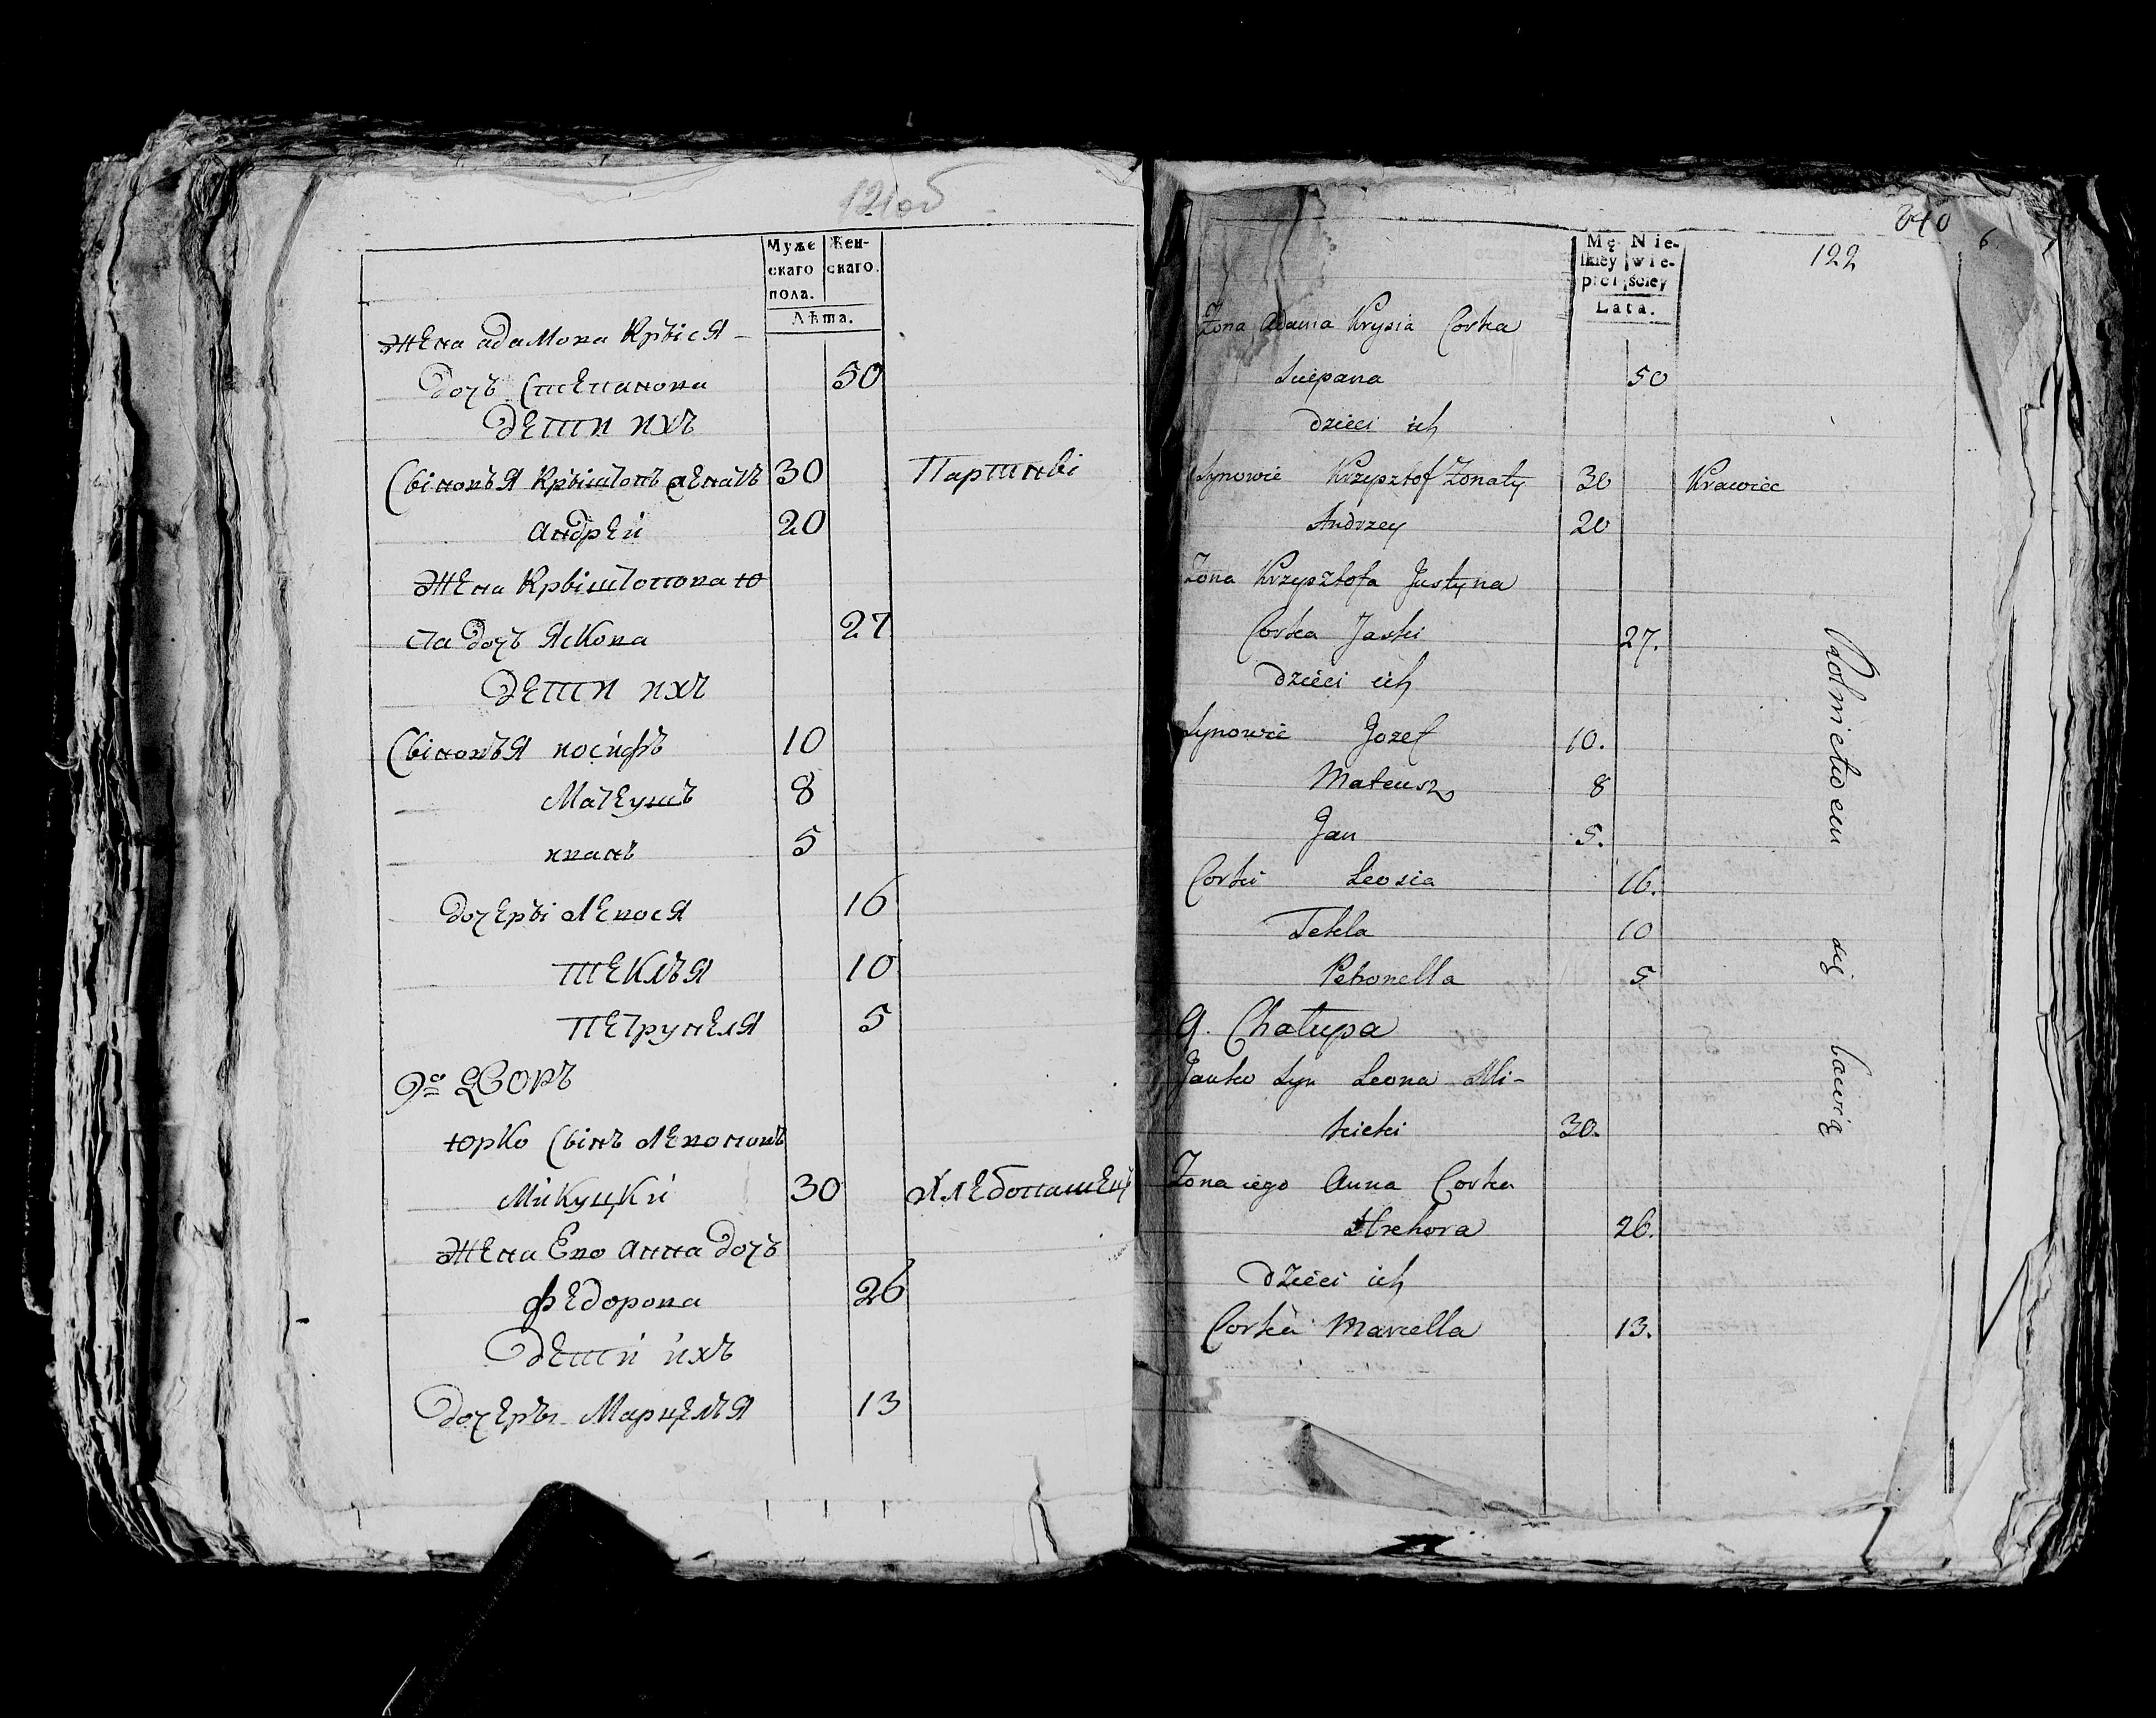 121об
Муже Жен-
скаго скаго.
пола.
Лѣта.
жена адамова Крыся
дочъ Степанова 50
дети ихъ
Сыновъя Крыштопъ женатъ 30 Партный
андрей 20
жена Крыштопова ю
ста дочъ Яскова 27
дети ихъ
Сыновъя иосифъ 10
Матеушъ 8
иванъ 5
дочеры Левося 16
текля 10
петрунеля 5
9о Дворъ
юрко Сынъ Левоновъ
Микуцки 30 Хлебопашецъ
жена Ево анна дочъ
федорова 26
дети ихъ
дочеръ Марцеля 13
840
6
122
Mę Nie-
skiey wie-
płci ściey
Lata.
Zona Adama Krysia Corka
Sciepana 50
dzieci ich
Synowie Krzysztof Zonaty 30 Krawiec
Andrzey 20
Zona Krzysztofa Justyna
Corka Jaski 27.
dzieci ich
Synowie Jozef 10.
Mateusz 8
Jan 5.
Corki Leosia 16.
Tekla 10
Petronella 5
9. Chałupa
Jurko Syn Leona Mi-
kicki 30.
Zona iego Anna Corka
Hrehora 26.
dzieci ich
Corka Marcella 13.
Rolnictwem się bawią